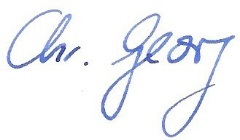 Chr. Georg